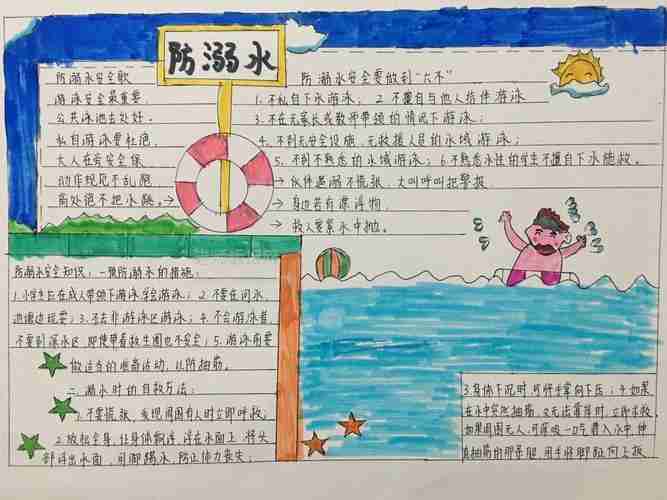 防溺水
防溺水安全歌
游泳安全最重要,
公共泳池去处好。
私自游泳要杜绝,
大人在旁安全保
动作规范不乱跑
高处绝不把水跳。→
防溺水安全要做到"六不"
1.不私自下水游泳; 2.不擅自与他人结伴游泳
3.不在无家长或教师带领的情况下游泳;
4.不到无安全设施、无救援人员的水域游泳;
5.不到不熟悉的水域游泳; 6.不熟悉水性的学生不擅自下水施救。
→ 伙伴遇溺不慌张,大叫呼叫把警报
→ 身边若有漂浮物,
→ 救人要紧水中抛。
防溺水安全知识:一预防溺水的措施:
1.小学生应在成人带领下游泳学会游泳; 2.不要在河水,
池塘边玩耍; 3.不去非游泳区游泳; 4.不会游泳者
不要到深水区,即使带着救生圈也不安全; 5.游泳前要
做适当的准备活动,以防抽筋。
二、溺水时的自救方法:
1.不要慌张,发现周围有人时立即呼救;
2.放松全身,让身体飘浮,浮在水面上,将头
部浮出水面,用脚踢水,防止体力丧失。
3.身体下沉时,可将手掌向下压; 4.如果
在水中突然抽筋,又无法靠岸时,立即求救
如果周围无人,可深吸一口气潜入水中,伸
直抽筋的那条腿,用手将脚趾向上扳